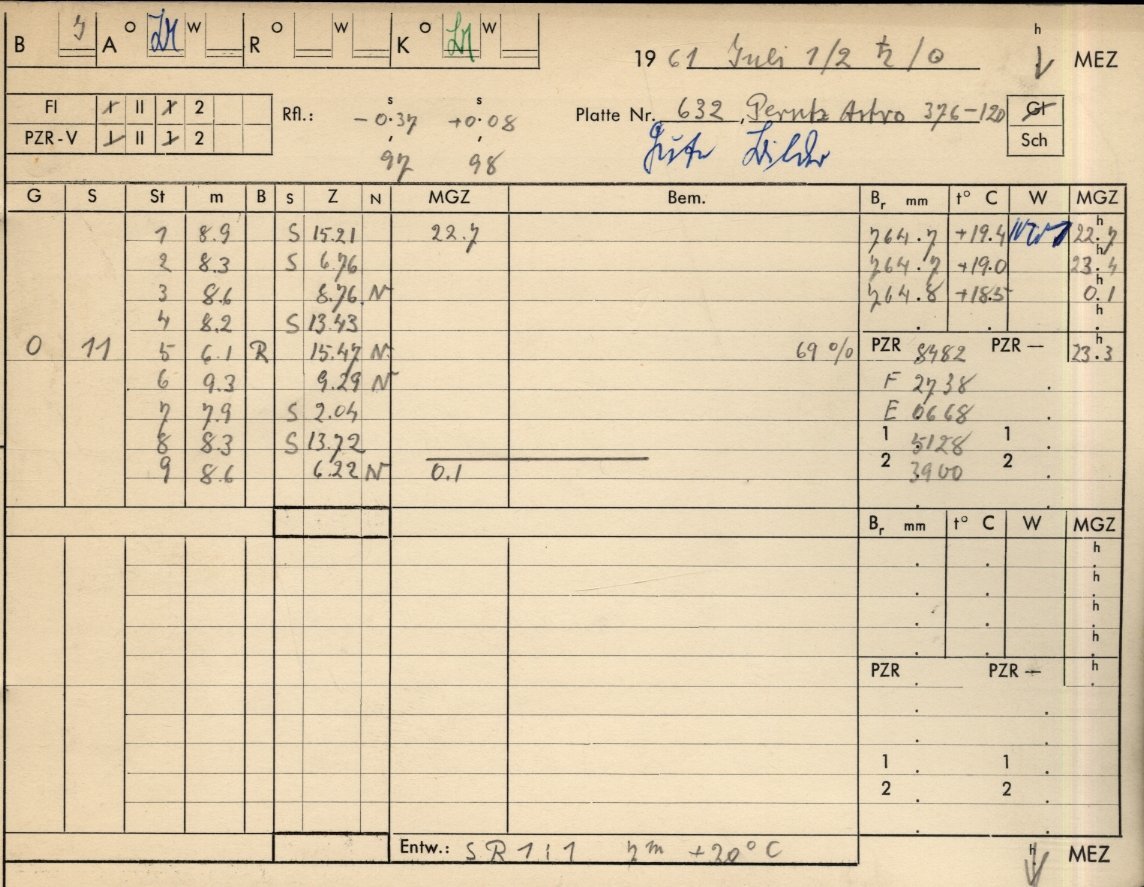 B A O W R O W K O W
h
19 61 Juli 1/2 ♄/☉ MEZ
Fl 1 II 1 2
PZR-V 1 II 1 2
Rfl.: s s
-0.37 +0.08
97 98
Platte Nr. 632, Perutz Astro 376-120 Gl
Sch
Gute Bilder
G S St m B S Z N MGZ Bem. Br mm t° C W MGZ
1 8.9 S 15.21 22.7 764.7 +19.4 NW 22.7 h
2 8.3 S 6.76 764.7 +19.0 23.4 h
3 8.6 8.76 N 764.8 +18.5 0.1 h
4 8.2 S 13.43 h
0 11 5 6.1 R 15.47 N 69 % PZR 8482 PZR — 23.3 h
6 9.3 9.29 N F 2738
7 7.9 S 2.04 E 0668
8 8.3 S 13.72 1 5128 1
9 8.6 6.22 N 0.1 2 3900 2
Br mm t° C W MGZ
h
h
h
h
PZR PZR — h
1 1
2 2
Entw.: S R 1:1 7m +20°C h MEZ